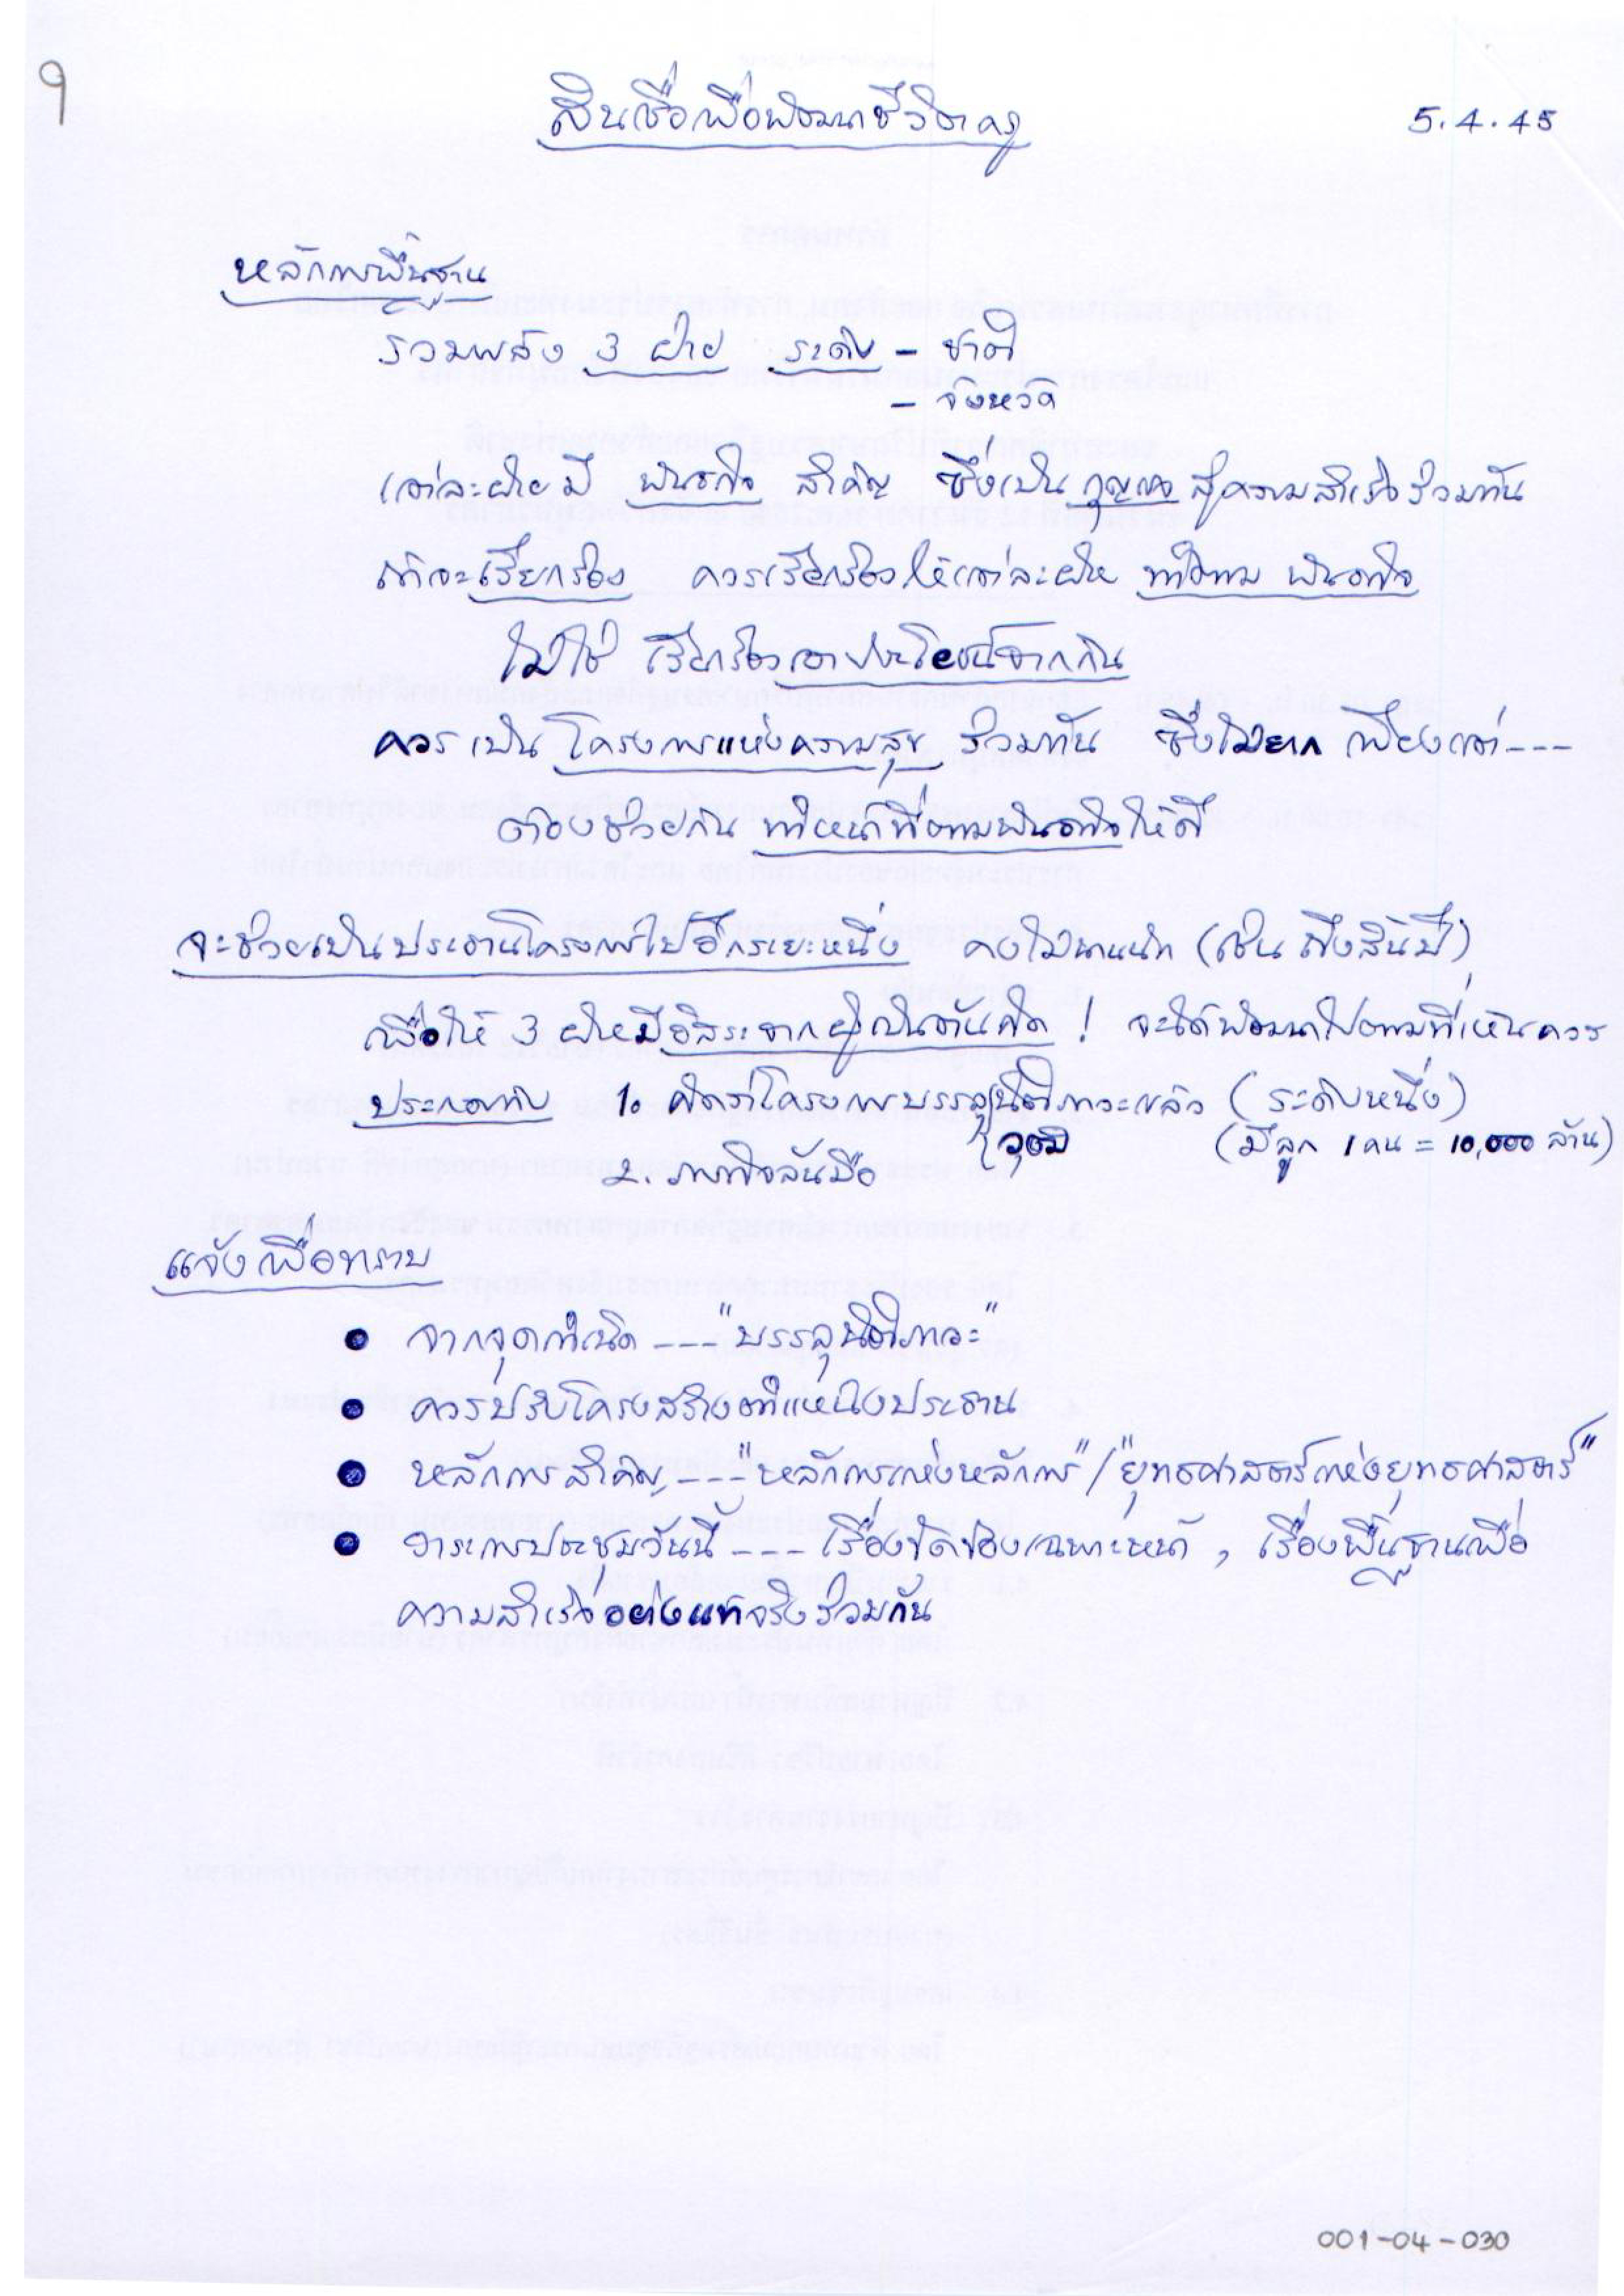 9
สินเชื่อเพื่อพัฒนาชีวิตครู
5.4.45
หลักการพื้นฐาน
รวมพลัง 3 ฝ่าย ระดับ - ชาติ
- จังหวัด
แต่ละฝ่ายมี พันธกิจ สำคัญ ซึ่งเป็น กุญแจ สู่ความสำเร็จร่วมกัน
ถ้าจะเรียกร้อง ควรเรียกร้องให้แต่ละฝ่าย ทำตาม พันธกิจ
ไม่ใช่ เรียกร้องเอาประโยชน์จากกัน
ควรเป็น โครงการแห่งความสุข ร่วมกัน ซึ่งไม่ยาก เพียงแต่ ---
ต้องช่วยกัน ทำหน้าที่ตามพันธกิจให้ดี
จะช่วยเป็นประธานโครงการไปอีกระยะหนึ่ง คงไม่นานนัก (เช่น ถึงสิ้นปี)
เพื่อให้ 3 ฝ่ายมีอิสระจากผู้เป็นต้นคิด ! จะได้พัฒนาไปตามที่เห็นควร
ประกอบกับ 1. คิดว่าโครงการบรรลุนิติภาวะแล้ว (ระดับหนึ่ง)
วุฒิ (มีลูก 1 คน = 10,000 ล้าน)
2. ภารกิจล้นมือ
แจ้งเพื่อทราบ
• จากจุดกำเนิด --- "บรรลุนิติภาวะ"
• ควรปรับโครงสร้างตำแหน่งประธาน
• หลักการสำคัญ --- "หลักการแห่งหลักการ" / "ยุทธศาสตร์แห่งยุทธศาสตร์"
• วาระการประชุมวันนี้ --- เรื่องขัดข้องเฉพาะหน้า , เรื่องพื้นฐานเพื่อ
ความสำเร็จอย่างแท้จริงร่วมกัน
001-04-030